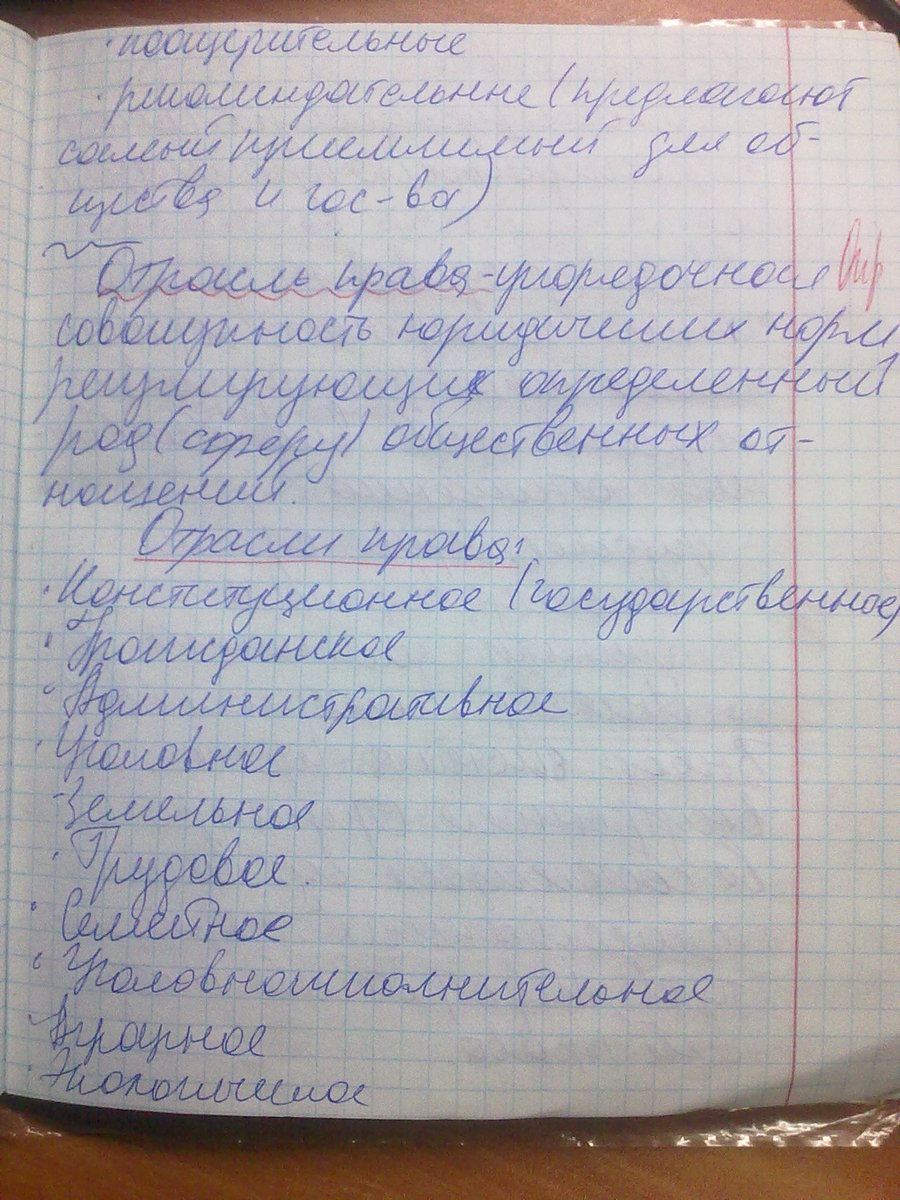 · поощерительные
· рекомендательные (предлагают
самый приемлимый для об-
щества и гос-ва)
Отрасль права - упорядочная Опр
совокупность юридических норм
регулирующих определенный
род (сферу) общественных от-
ношений.
Отрасли права:
· Конституционное (государственное)
· Гражданское
· Административное
· Уголовное
· Земельное
· Трудовое
· Семейное
· Уголовноисполнительное
· Аграрное
· Экологическое